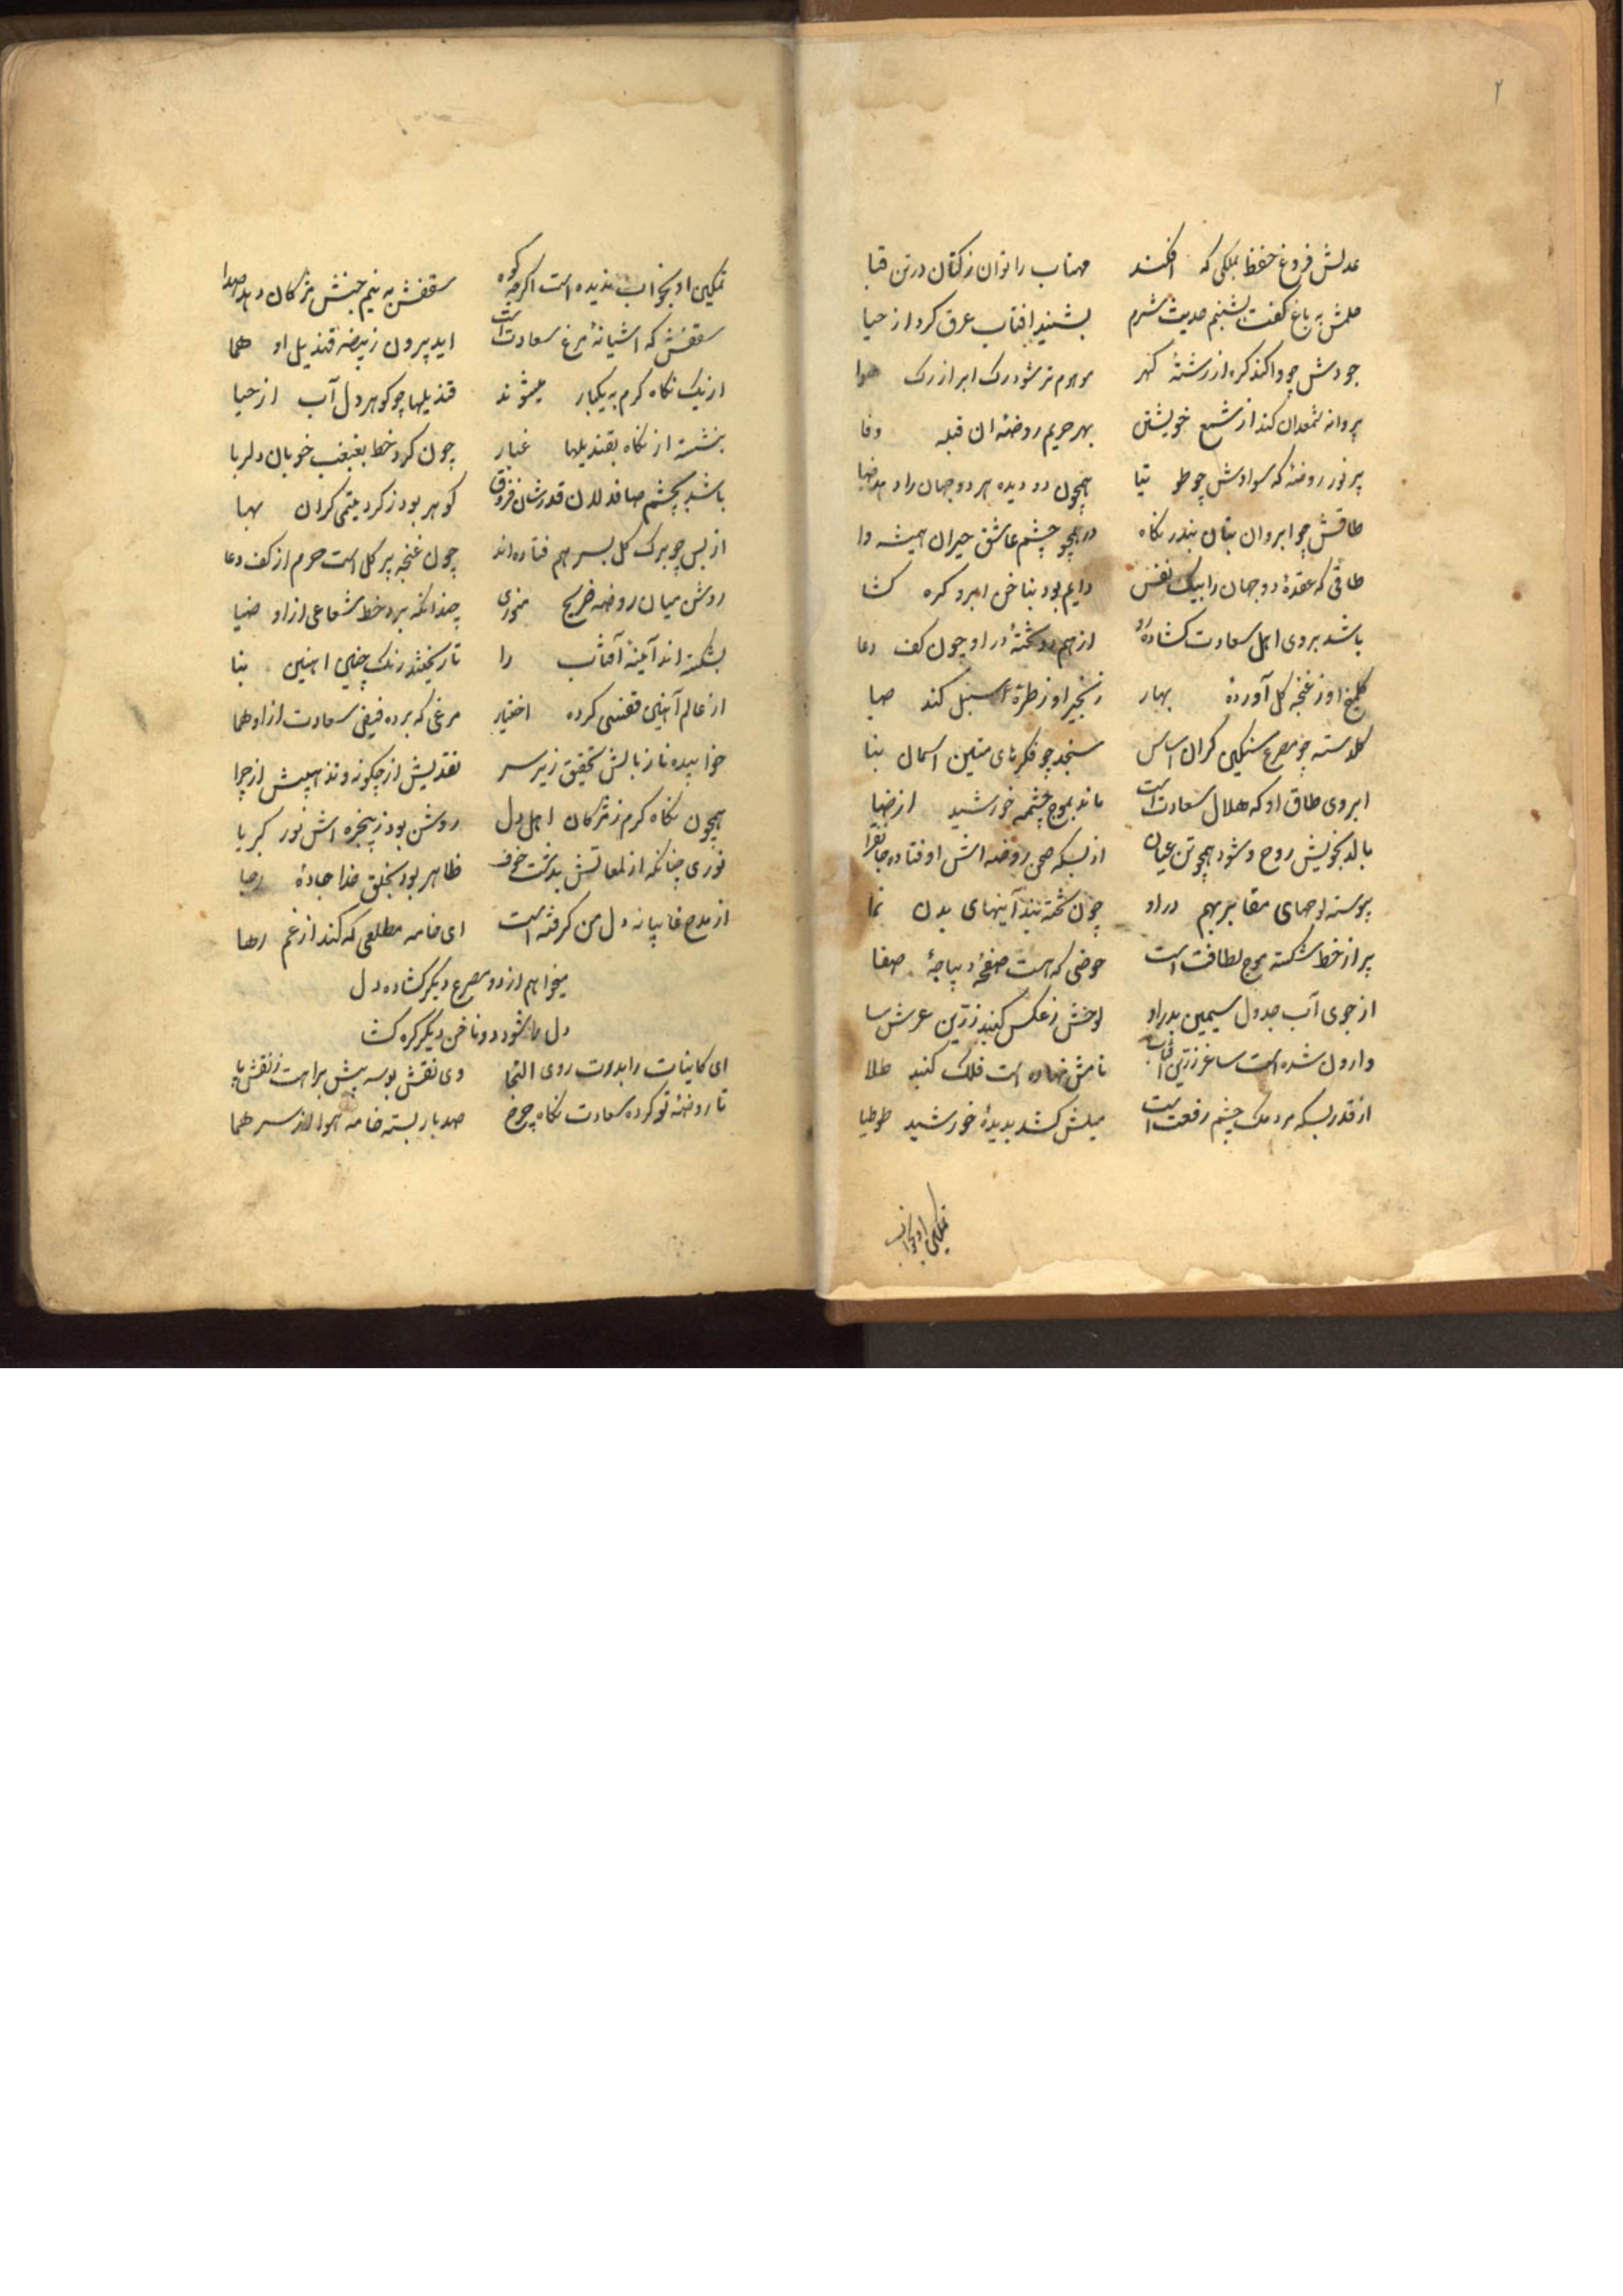 ۲
عدلش فروغ حفظ بملکی که افکند مهتاب را توان ز کتان در تن قبا
حلمش به باغ گفت بشبنم حدیث شرم بشنید افتاب عرق کرد از حیا
جودش چو واکند کره از رشتهٔ کهر موهوم تر شود رک ابر از رک هوا
پروانه شمعدان کند از شمع خویشتن بهر حریم روضهٔ ان قبله وفا
پر نور روضهٔ که سوادش چو طوتیا همچون دو دیده هر دو جهان را دهد ضیا
طاقش چو ابروان بتان بندر نکاه در همچو چشم عاشق حیران همیشه وا
طاقی که عقدهٔ دو جهان را بیک نفس دایم بود بناخن ابرو کره کشا
باشد بروی اهل سعادت کشاده رو از هم دو تختهٔ در او چون کف دعا
کلمیخ او ز غنجه کل آوردهٔ بهار زنجیر او ز طرهٔ سنبل کند صبا
کلدسته چو مصرع سنکین کران اساس سنجد چو فکرهای متین اسمان بنا
ابروی طاق او که هلال سعادت است ماند بموج چشمه خورشید از ضیا
بالد بخویش روح و شود همچو تن عیان از بسکه صحن روضه اش افتاده جانفزا
پیوسته لوحهای مقابر بهم در او چون تخته بند آینهای بدن نما
پر از خط شکسته موج لطافت است حوضی که هست صفحهٔ دیباجهٔ صفا
از جوی آب جدول سیمین بدر او لوحش ز عکس کنبد زرین عرش سا
وارون شده است ساغر زرین آفتاب نامش نهاده است فلک کنبد طلا
از قدر بسکه مردمک چشم رفعت است میلش کشد بدیدهٔ خورشید طوطیا
تمکین او بخواب
تمکین او بخواب ندیده است اکرچه کوه سقفش به نیم جنبش مژکان دهد صدا
سقفش که اشیانهٔ مرغ سعادت است اید برون ز بیضه قندیل او هما
از یک نکاه کرم به یکبار میشوند قندیلها چو کوهر دل آب از حیا
بنشسته از نکاه بقندیلها غبار چون کرد خط بغبغب خوبان دلربا
باشد بچشم صافدلان قدرشان فزون کوهر بود ز کرد یتیمی کران بها
از بس چو برک کل بسر هم فتاده اند چون غنجه پر کل است حرم از کف دعا
روشن میان روضه ضریح منوری چندانکه برد خط شعاعی از او ضیا
بشکسته اند آینه آفتاب را تا ریختند رنک چنین اهنین بنا
از عالم آهنین قفسی کرده اختیار مرغی که برده فیض سعادت از او هما
خوابیده ناز بالش تحقیق زیر سر تقدیش از چکونه و تذهیبش از چرا
همچون نکاه کرم ز مژکان اهل دل روشن بود ز پنجره اش نور کبریا
نوری چنانکه از لمعاتش بدشت خوف ظاهر بود بخلق خدا جادهٔ رجا
از مدح غایبانه دل من کرفته است ای خامه مطلعی که کند از غم رها
میخواهم از دو مصرع دیکر کشاده دل
دل را شود دو ناخن دیکر کره کشا
ای کاینات را بدرت روی التجا وی نقش بوسه بیش براهت ز نقش پا
تا روضهٔ تو کرده سعادت نکاه چرخ صد بار بسته خامه هوا از سر هما